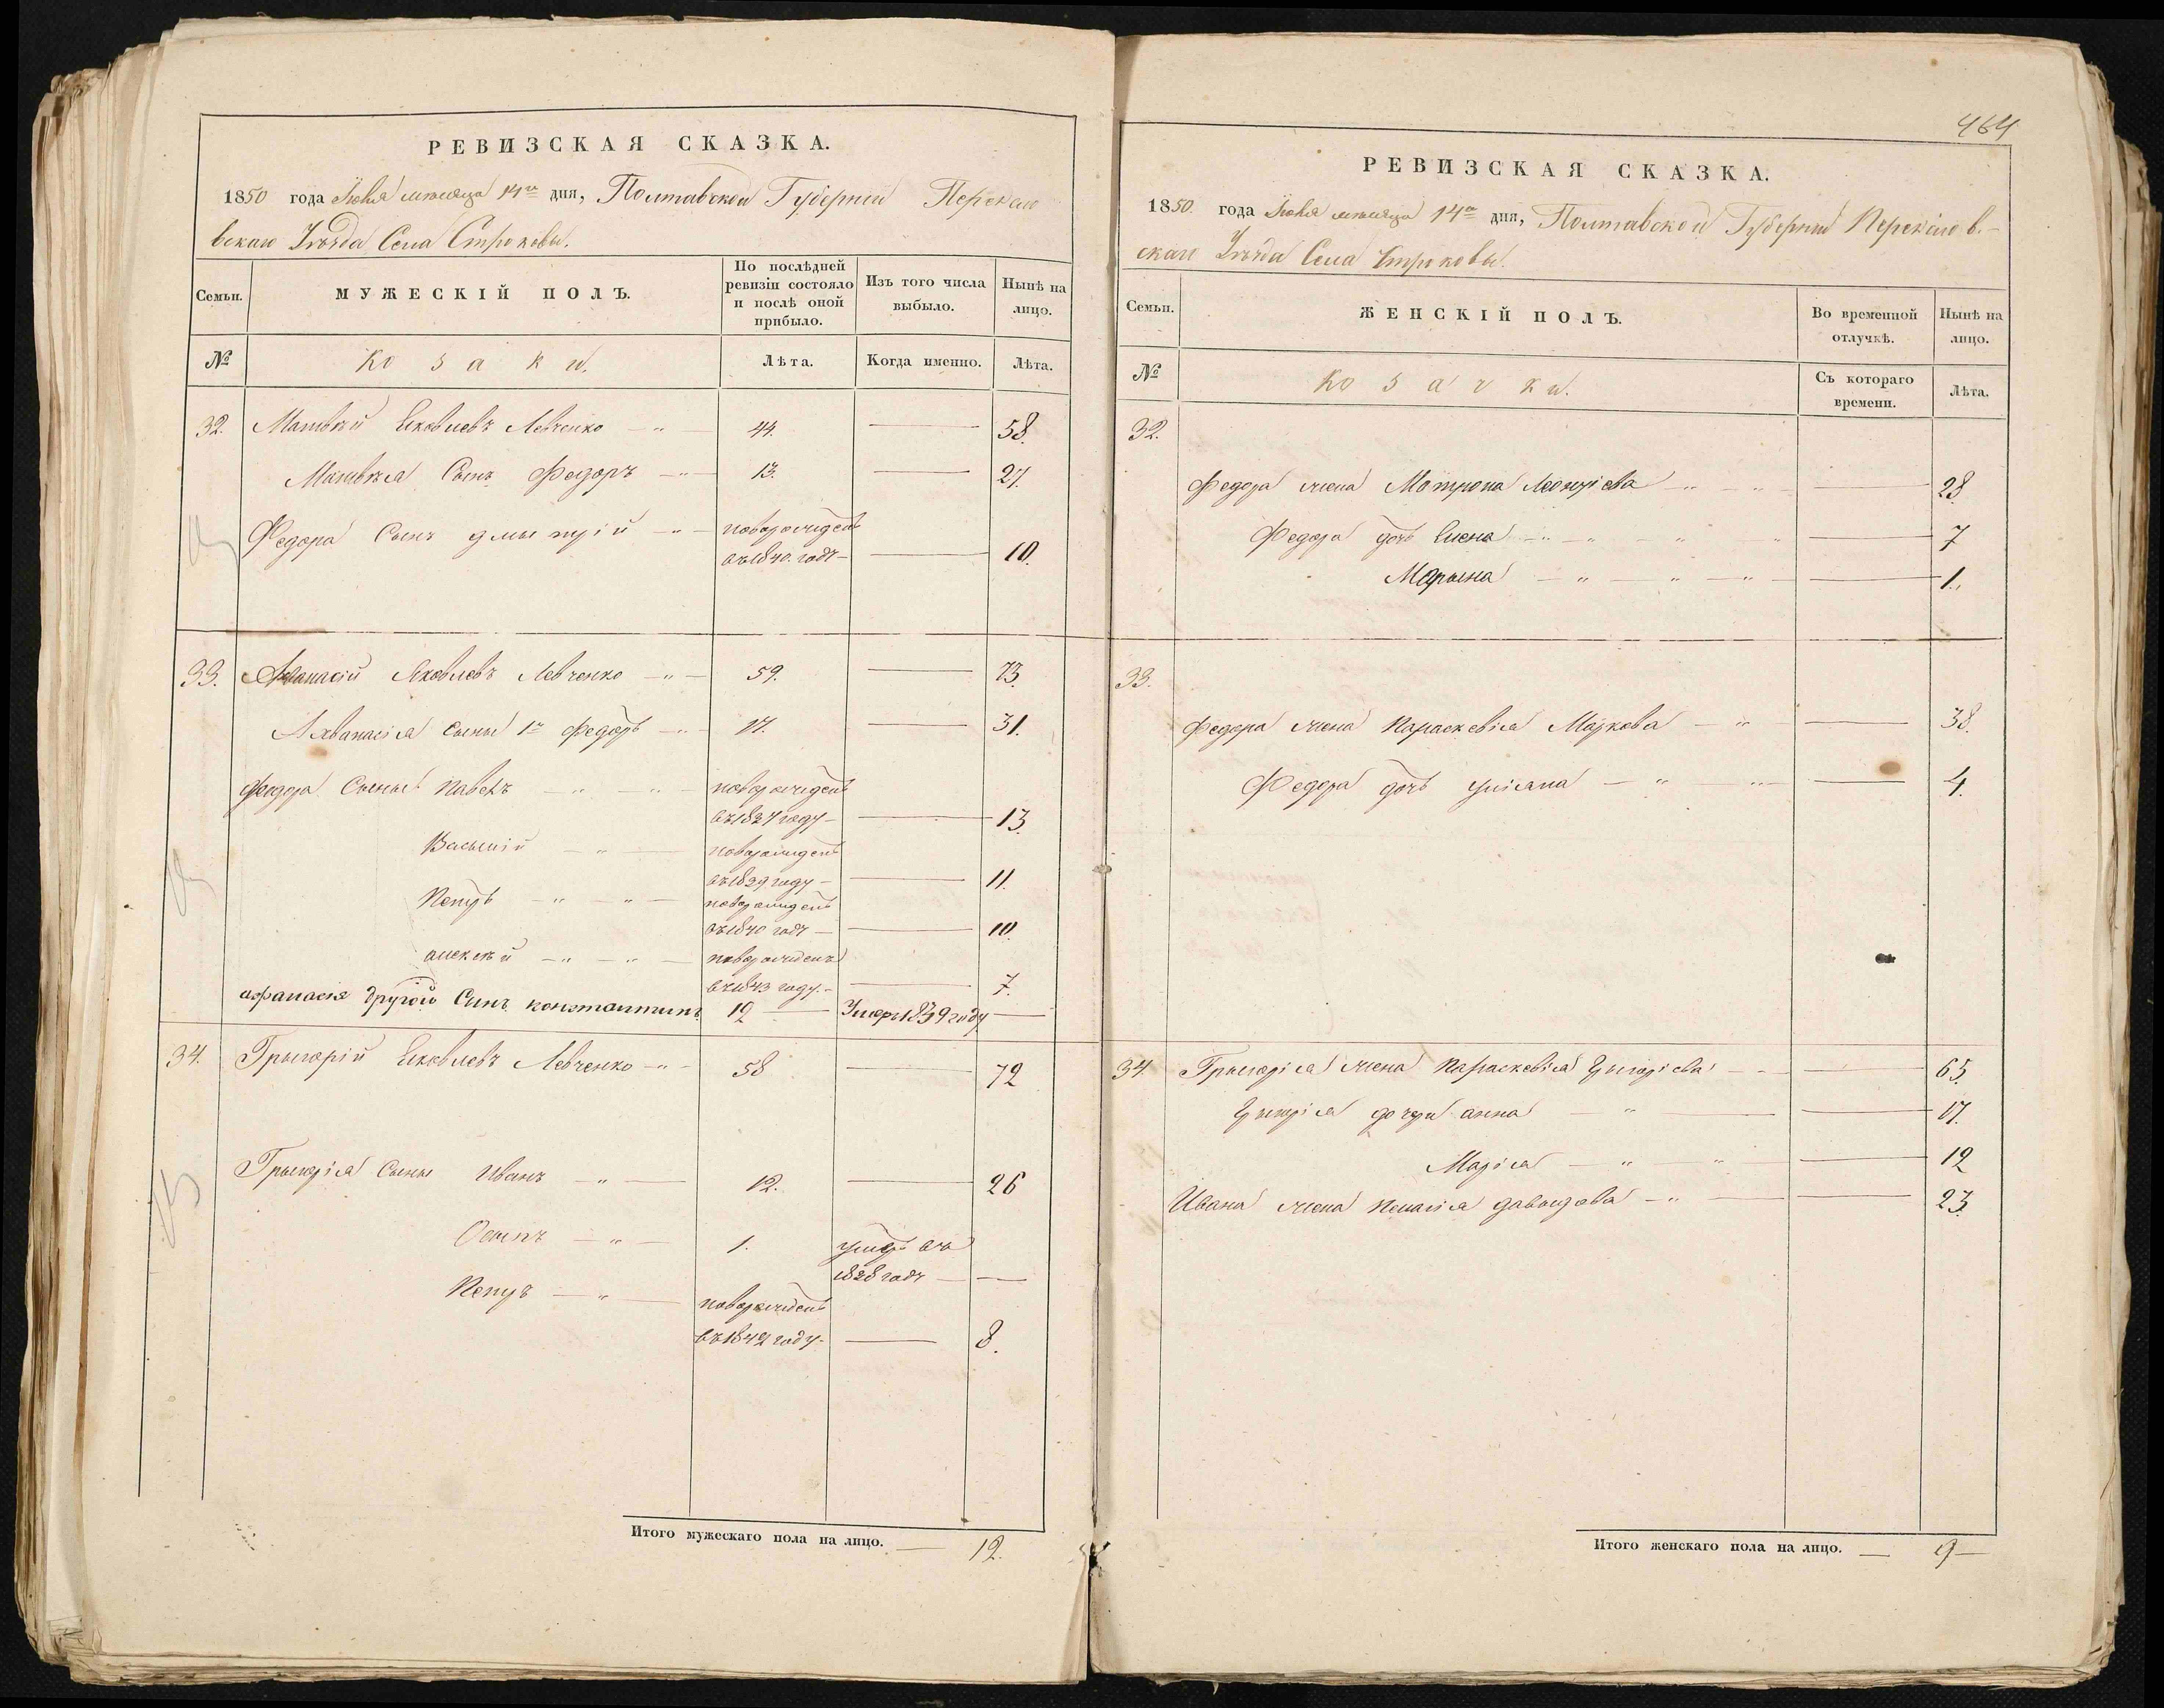 РЕВИЗСКАЯ СКАЗКА.
1850 года Іюня мѣсяца 14го дня, Полтавской Губерніи Переясло
вскаго Уѣзда Села Строковы.
Семьи.
МУЖЕСКІЙ ПОЛЪ.
По послѣдней ревизіи состояло и послѣ оной прибыло.
Изъ того числа выбыло.
Нынѣ на лицо.
№
Козаки.
Лѣта.
Когда именно.
Лѣта.
32. Матвѣй Яковлевъ Левченко — " — 44. — 58.
Матвѣя Сынъ Федоръ — " — 13. — 27.
Федора Сынъ дмытрій — " — новорожденъ
въ 1840. годѣ — — 10.
33. Афанасій Яковлевъ Левченко — " — 59. — 73.
Ахванасія сыны 1й федоръ — " — 17. — 31.
федора Сыны Павелъ — " — " — новорожденъ
въ 1837 году — — 13.
Васылій — " — новорожденъ
въ 1839 году — — 11.
Петръ — " — " — новорожденъ
въ 1840 годѣ — — 10.
алексѣй — " — " — новорожденъ
въ 1843 году. — — 7.
афанасія другой Синъ константинъ 12 — Умеръ 1839 году —
34. Грыгорій Яковлевъ Левченко — " — 58 — 72
Грыгорія Сыны Иванъ — " — 12. — 26
Осыпъ — " — 1. умеръ въ
1828 годѣ — —
Петръ — " — новорожденъ
въ 1842 году — — 8.
Итого мужескаго пола на лицо. — 12.
464
РЕВИЗСКАЯ СКАЗКА.
1850. года Іюня мѣсяца 14го дня, Полтавской Губерніи Переяслов-
скаго Уѣзда Села Строковы.
Семьи.
ЖЕНСКІЙ ПОЛЪ.
Во временной отлучкѣ.
Нынѣ на лицо.
№
Козачки.
Съ котораго времени.
Лѣта.
32.
Федора жена Мотрона Леонтіева — " — " — 28
Федора дочь Елена — " — " — " — " — 7
Марына — " — " — " — — 1.
33.
Федора жена Параскевія Маркова — " — — 38.
Федора дочь уліана — " — " — — 4.
34. Грыгорія жена Параскевія Грыгоріева — — 65.
Грыгорія дочери анна — " — — 17.
Марія — " — " — — 12
Ивана жена Пелагія давыдова — " — — 23.
Итого женскаго пола на лицо. — 9 —